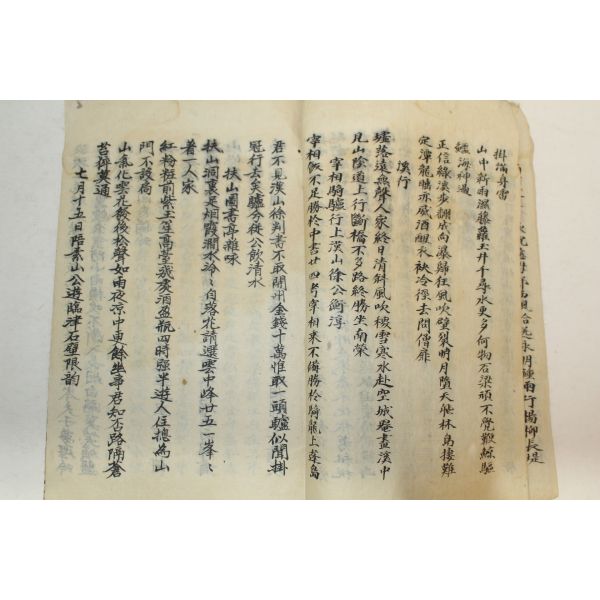 掛滿舟雷
山中新雨濕藤蘿玉井千尋水更多何物石梁頑不覺歡鯨驅
鱷海神過
正信緣溪步翻成向暮歸狂風吹壁裂明月墮天飛林鳥棲難
定潭龍臥亦威酒醒衣袂冷徑去問僧扉
溪行
墟落遠無聲人家終日清斜風吹積雪寒水赴空城盡溪中
見山陰道上行斷橋不多路終勝坐南榮
宰相騎驢行上漢山徐公衡淳
宰相飯不足勝於中書廿四考宰相來不備勝於騎龍上蓬島
君不見漢山徐判書不取開州金錢十萬惟取一頭驢似聞掛
冠行去矣驢兮從公飲清水
扶山圖書亭雜咏
扶山洞裏足烟霞澗水泠泠自落花請選雲中峰廿五一峯峯
着一人家
紅粉磁前紫玉笙高堂幾處酒盈瓶四時強半遊人住摠為山
門不設扃
山氣化雲花微後松聲如雨夜凉中更餘坐尋君知否路隔蒼
苔屐莫通
七月十五日陪素山公遊臨津石壁限韵